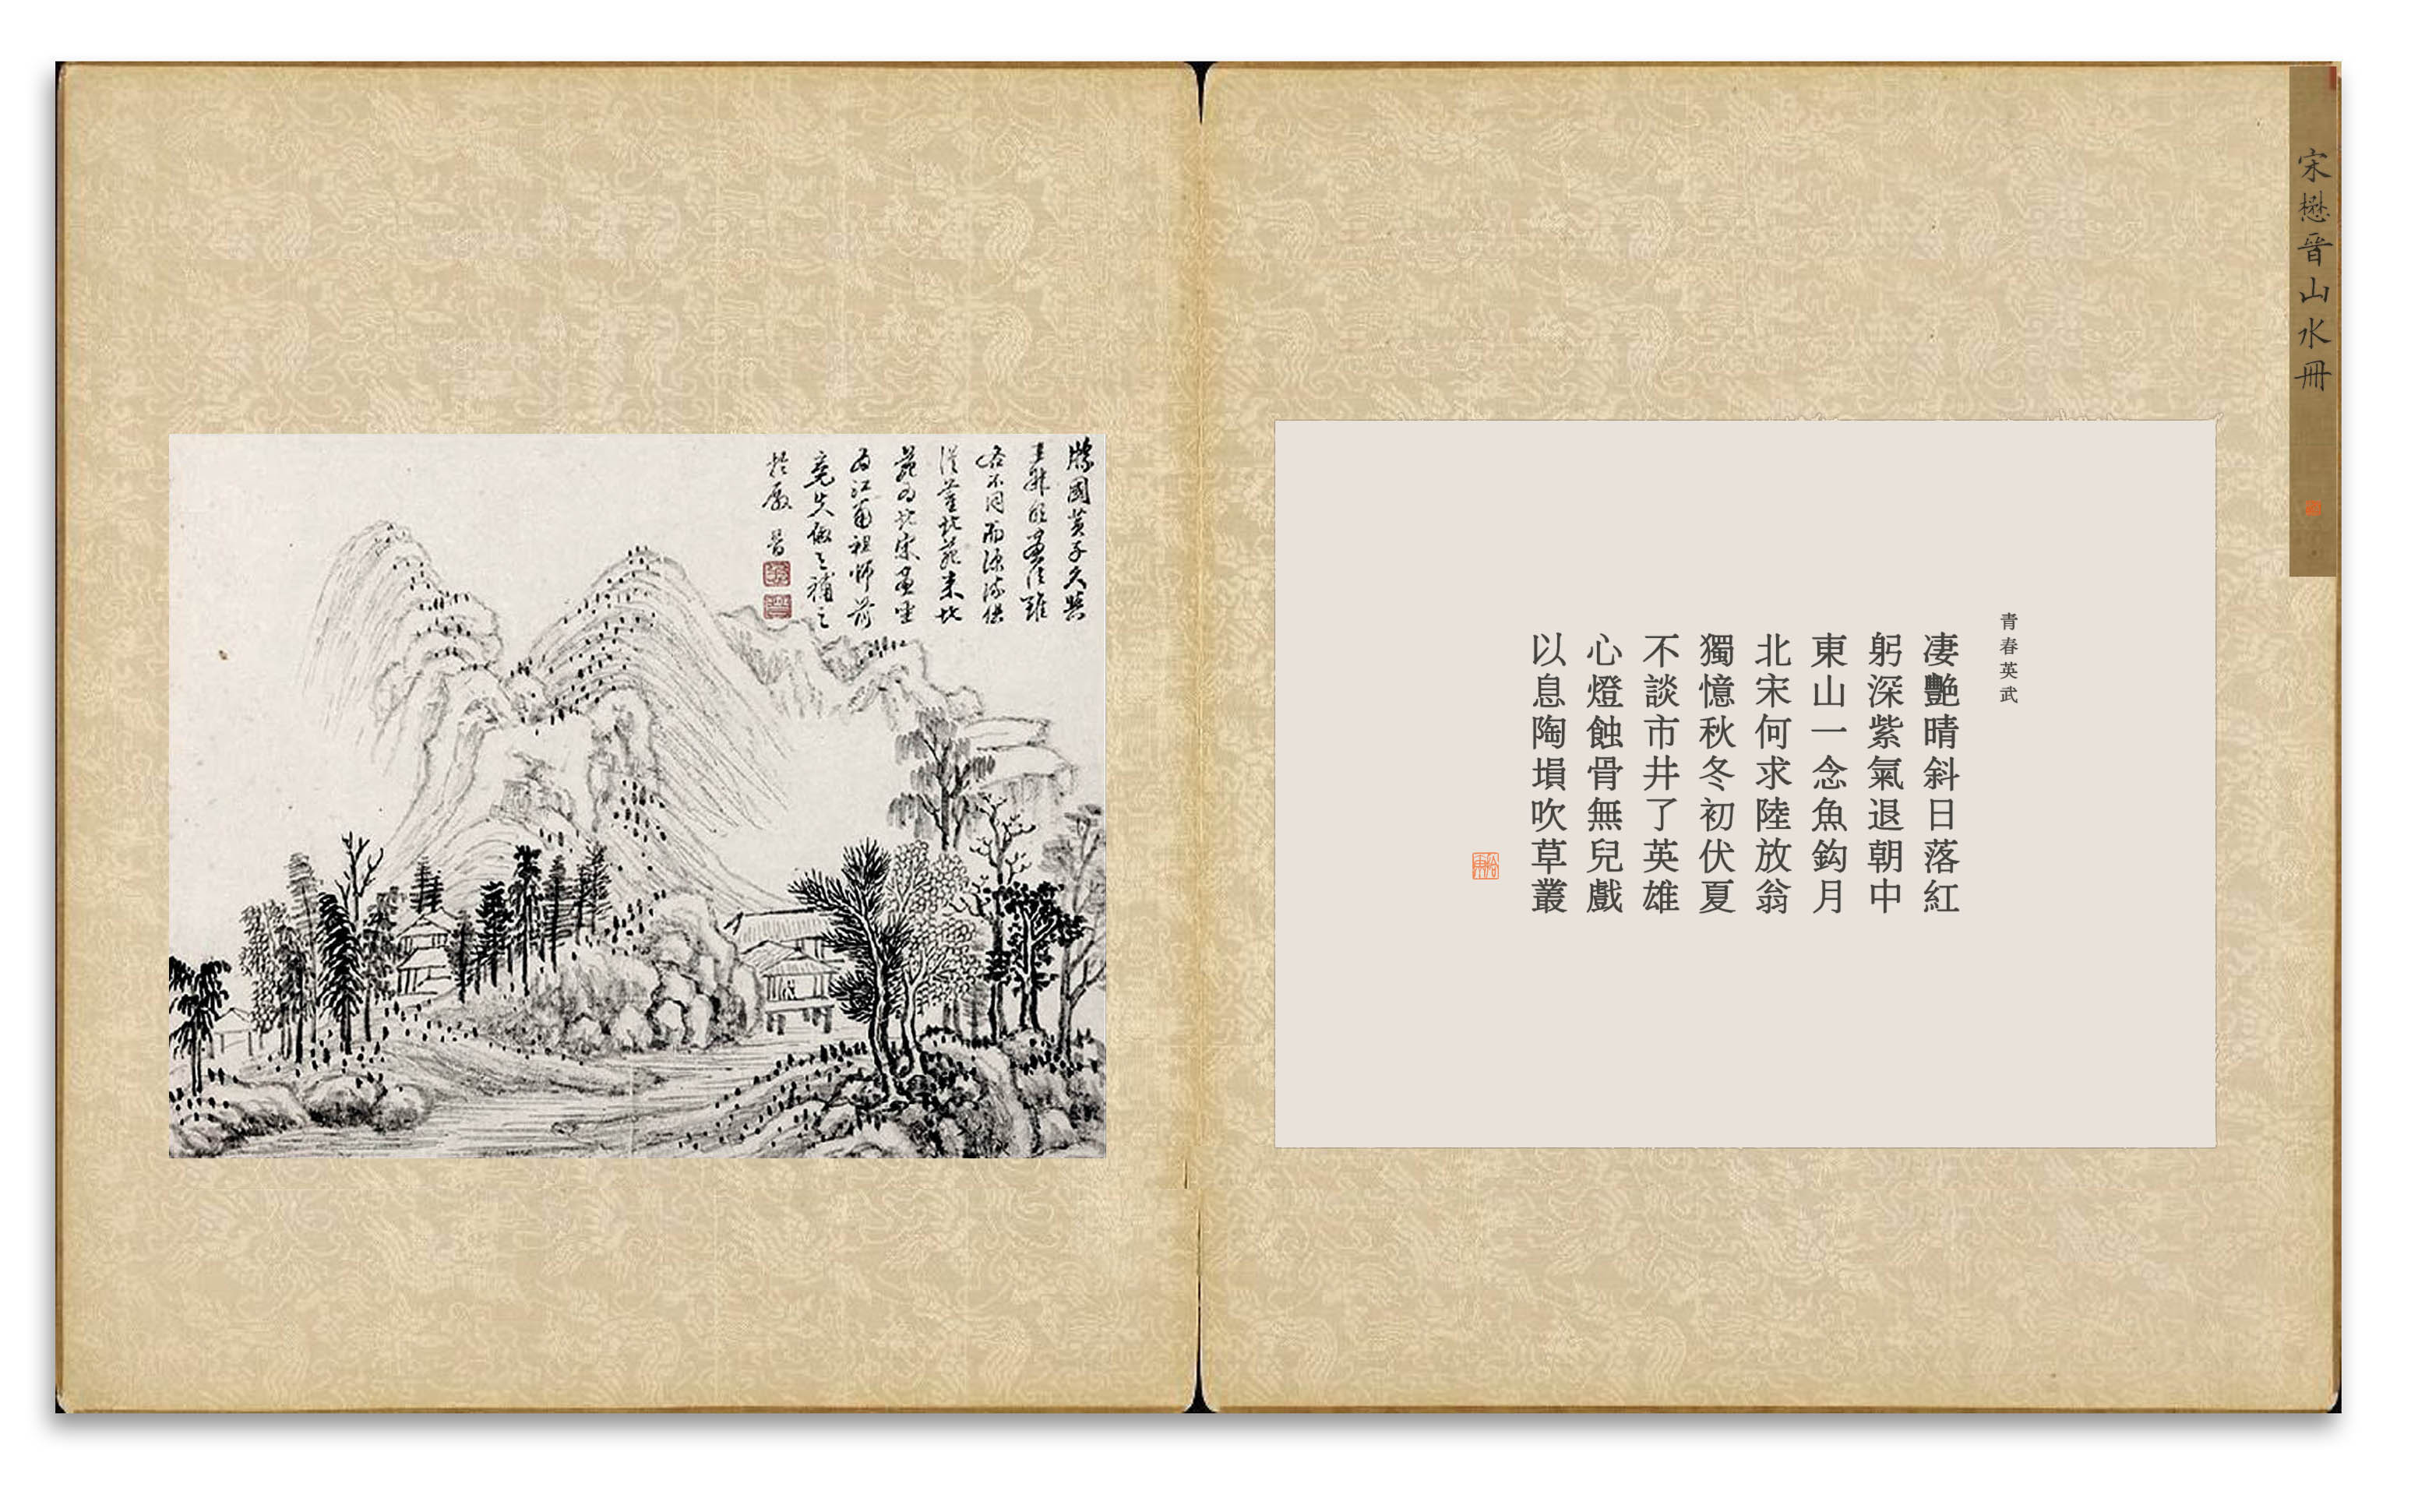 宋懋晉山水冊
青春英武
凄艷晴斜日落紅
躬深紫氣退朝中
東山一念魚鈎月
北宋何求陸放翁
獨憶秋冬初伏夏
不談市井了英雄
心燈蝕骨無兒戲
以息陶塤吹草叢
勝國黃子久與
王叔明畫法雖
各不同而源流俱
從董北苑來北
苑為北宋畫
為江南祖師